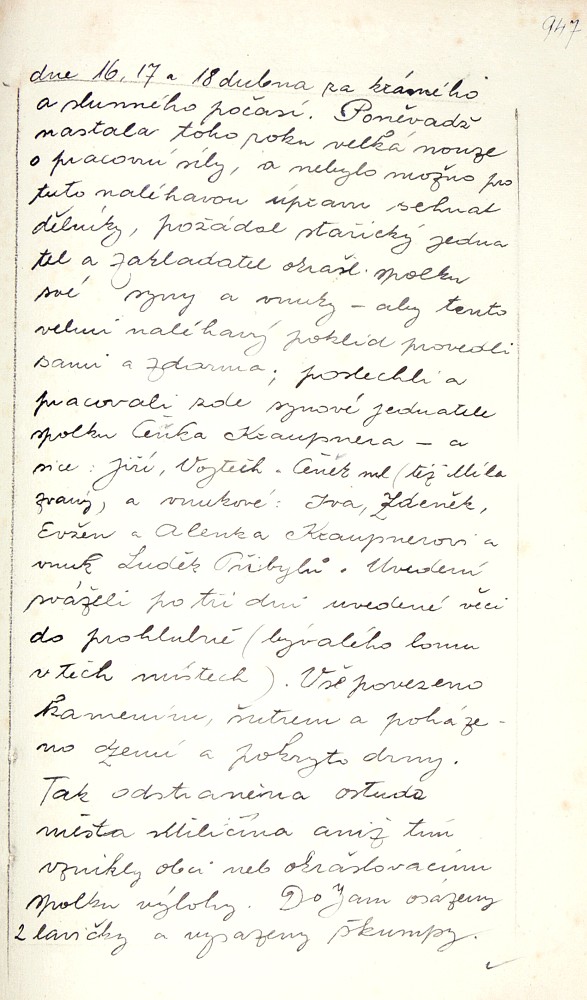 947
dne 16, 17 a 18 dubna za krásného
a slunného počasí. Poněvadž
nastala toho roku velká nouze
o pracovní síly, a nebylo možno pro
tuto naléhavou úpravu sehnat
dělníky, požádal stařický jedna
tel a zakladatel okrašl. spolku
své syny a vnuky – aby tento
velmi naléhavý poklid provedli
sami a zdarma; poslechli a
pracovali zde synové jednatele
spolku Čeňka Kraupnera – a
sice: Jiří, Vojtěch a Čeněk ml (též Míla
zvaný), a vnukové: Iva, Zdeněk,
Evžen a Alenka Kraupnerovi a
vnuk Luděk Přibylů. Uvedení
sváželi po tři dni uvedené věci
do prohlubně (bývalého lomu
v těch místech). Vše povezeno
kamením, šutrem a poháze-
no zemí a pokryto drny.
Tak odstraněna ostuda
města Miličína aniž tím
vznikly obci neb okrašlovacímu
spolku výlohy. Do jam osázeny
2 lavičky a vysazeny škumpy.